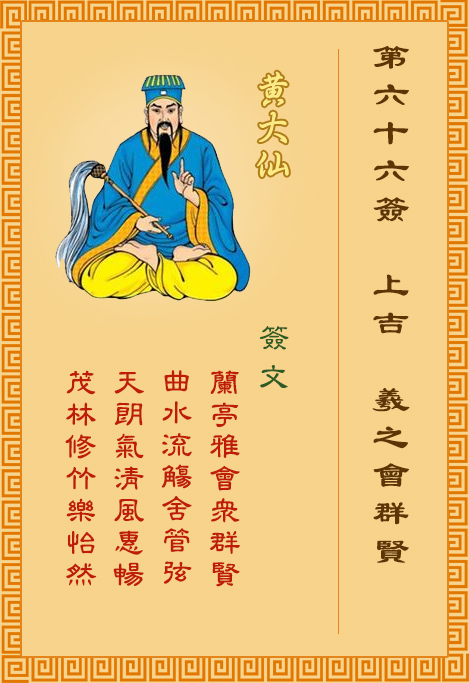 第六十六簽 上吉 羲之會群賢
黃大仙
簽文
蘭亭雅會眾群賢
曲水流觴舍管弦
天朗氣清風惠暢
茂林修竹樂怡然